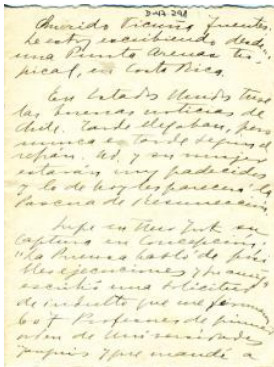 D-47.298
Querido Vicuña Fuentes:
Le estoy escribiendo desde
una Punta Arenas tro
pical, en Costa Rica.
En Estados Unidos tuve
las buenas noticias de
Chile. Tarde llegaban, pero
nunca es tarde según el
refrán. Ud. y su mujer
estarán muy padecidos
y lo de hoy les parecerá la
Pascua de Resurrección
Supe en New York su
captura en Concepción.
"La Prensa habló de posi
bles ejecuciones y
escribió una solicitud
de indulto que me firmaron
6 o 7 Profesores de primer
orden de Universidades
yanquis y que mandé a